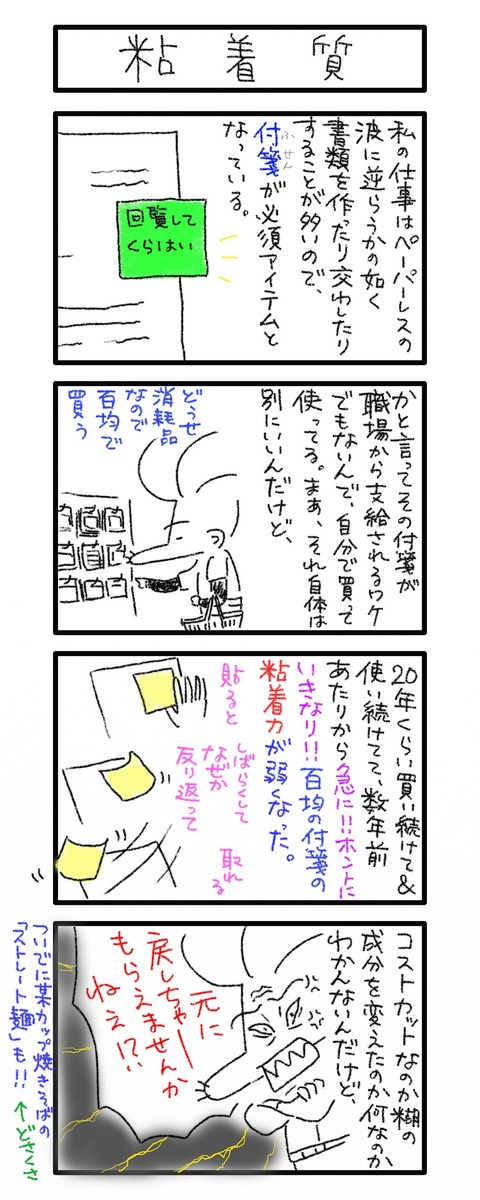 粘着質
私の仕事はペーパーレスの
波に逆らうかの如く
書類を作たり交わしたり
することが多いので、
付箋が必須アイテムと
ふせん
なっている。
回覧して
くらはい
かと言ってその付箋が
職場から支給されるワケ
でもないんで、自分で買って
使ってる。まぁ、それ自体は
別にいいんだけど、
どうせ
消耗品
なので
百均で
買う
20年くらい買い続けて&
使い続けてて、数年前
あたりから急に!!ホントに
いきなり!!百均の付箋の
粘着力が弱くなった。
貼ると
しばらくして
なぜか
反り返って
取れる
コストカットなのか糊の
成分を変えたのか何なのか
わかんないんだけど、
元に
戻しちゃー
もらえませんか
ねえ!?
ついでに某カップ焼きそばの
「ストレート麺」も!!
←どさくさ